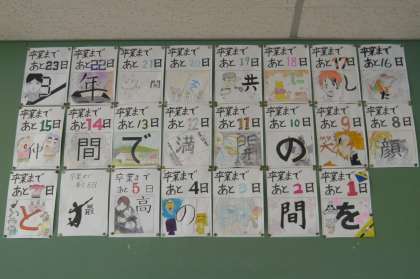 卒業まで
あと23日
卒業まで
あと22日
年
卒業まで
あと21日
間
卒業まで
あと20日
卒業まで
あと19日
共
卒業まで
あと18日
卒業まで
あと17日
し
卒業まで
あと16日
卒業まで
あと15日
仲
卒業まで
あと14日
間
卒業まで
あと13日
で
卒業まで
あと12日
満
卒業まで
あと11日
開
卒業まで
あと10日
の
卒業まで
あと9日
卒業まで
あと8日
顔
卒業まで
と
卒業まで
あと6日
最
卒業まで
あと5日
高
卒業まで
あと4日
の
卒業まで
あと3日
卒業まで
あと2日
間
卒業まで
あと1日
を